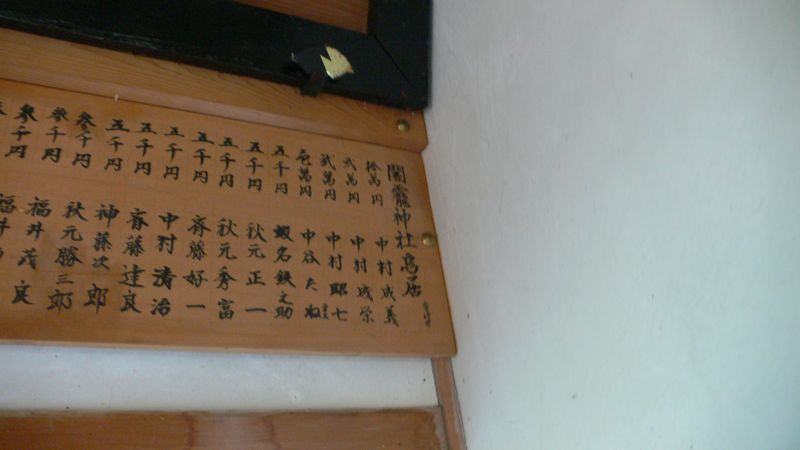 闇龗神社鳥居
拾萬円 中村成義
弐萬円 中村成栄
弐萬円 中村昭七
壱萬円 中谷たね
五千円 蝦名鉄之助
五千円 秋元正一
五千円 秋元秀富
五千円 斉藤好一
五千円 中村清治
五千円 斉藤達良
五千円 神藤次郎
参千円 秋元勝三郎
参千円 福井茂良
参千円 福井